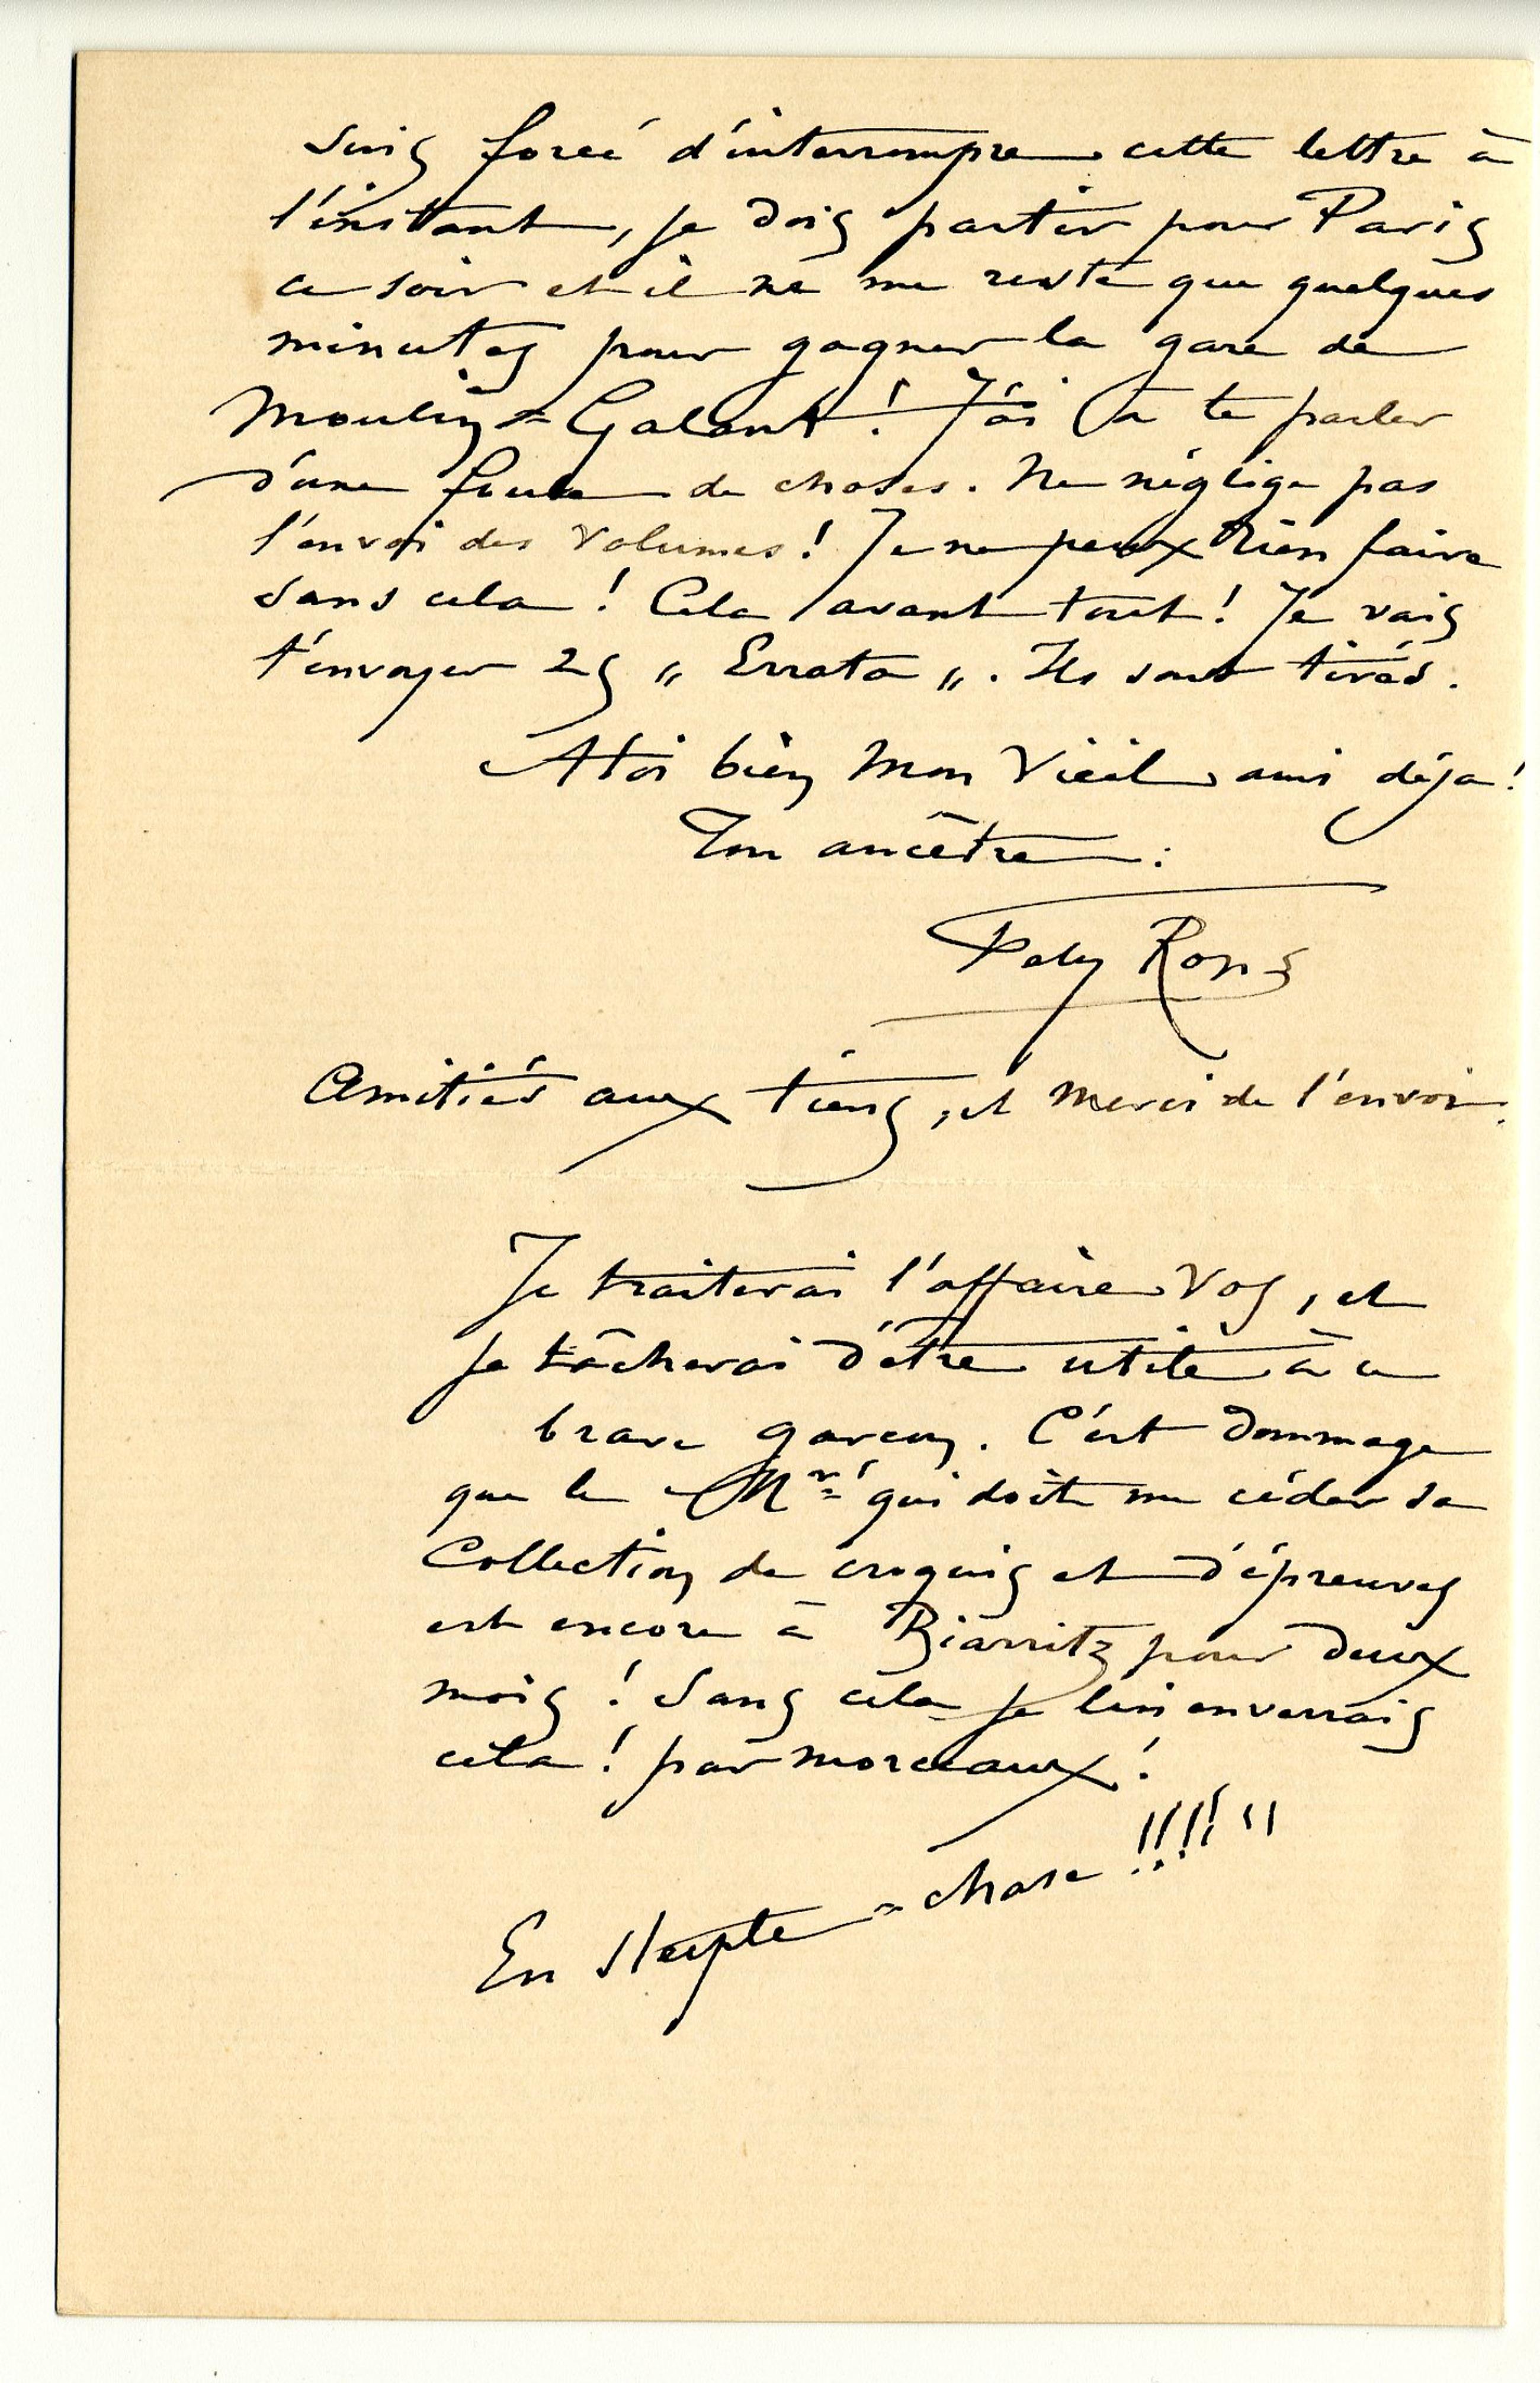 suis forcé d'interrompre cette lettre à
l'instant, je dois partir pour Paris
ce soir et il ne me reste que quelques
minutes pour gagner la gare de
Moulin=Galant ! J'ai à te parler
d'une foule de choses. Ne néglige pas
l'envoi des volumes ! Je ne peux rien faire
sans cela ! Cela avant tout ! Je vais
t'envoyer 25 " Errata ". Ils sont tirés.
A toi bien mon vieil ami déja !
Ton ancêtre :
Fély Rops
Amitiés aux tiens, et merci de l'envoi.
Je traiterai l'affaire Vos, et
je tâcherai d'être utile à ce
brave garçon. C'est dommage
que le Mr qui doit me céder sa
Collection de croquis et d'épreuves
est encore à Biarritz pour deux
mois ! Sans cela je lui enverrais
cela ! par morceaux !
En = chose !!!! !!